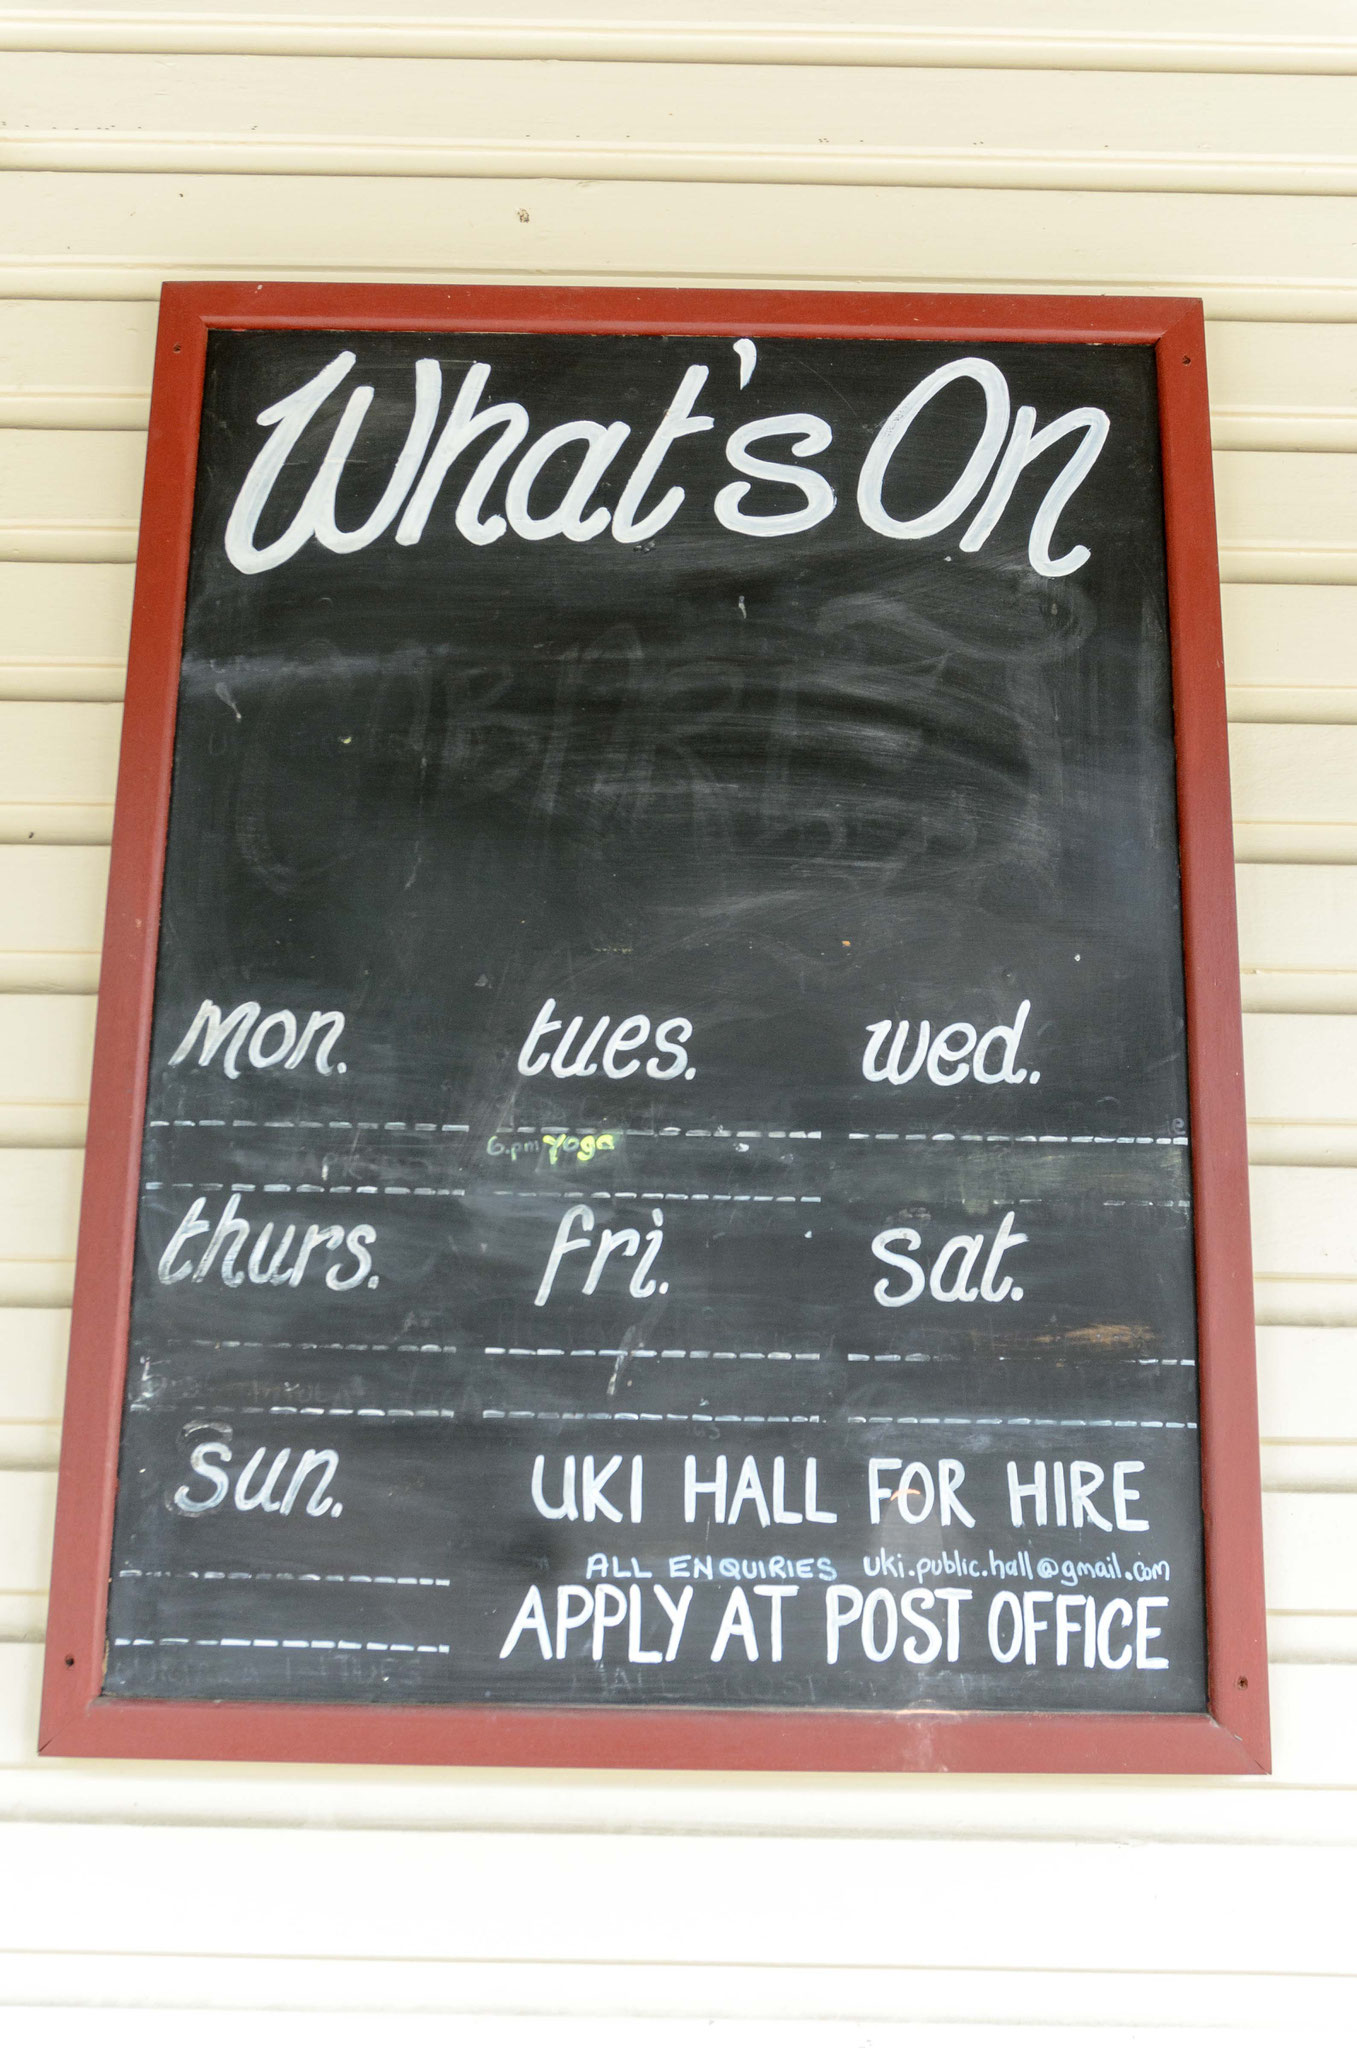 What's On
mon. tues. wed.
6.pm yoga
thurs. fri. sat.
sun. UKI HALL FOR HIRE
ALL ENQUIRIES uki.public.hall@gmail.com
APPLY AT POST OFFICE